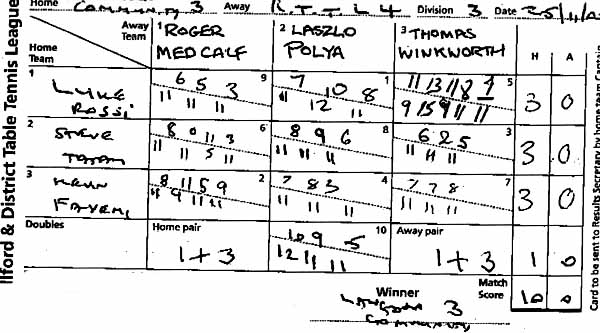 Home Community 3 Away R.T.T.L 4 Division 3 Date 25/11/
Ilford & District Table Tennis League
Away Team
Home Team
1 ROGER MEDCALF
2 LASZLO POLYA
3 THOMAS WINKWORTH
H A
1 LUKE ROSSI
6 5 3 9
11 11 11
7 10 8 1
11 12 11
11 13 11 8 9 5
9 15 9 11 11
3 0
2 STEVE
8 0 11 3 6
11 11 5 11
8 9 6 8
11 11 11
6 2 5 3
11 11 11
3 0
3 KEVIN FAYEMI
8 11 5 9 2
11 9 11 11
7 8 3 4
11 11 11
7 7 8 7
11 11 11
3 0
Doubles
Home pair
1+3
10 9 5 10
12 11 11
Away pair
1+3
1 0
Winner
3
COMMUNITY
Match Score
10 0
Card to be sent to Results Secretary by home Team Captain